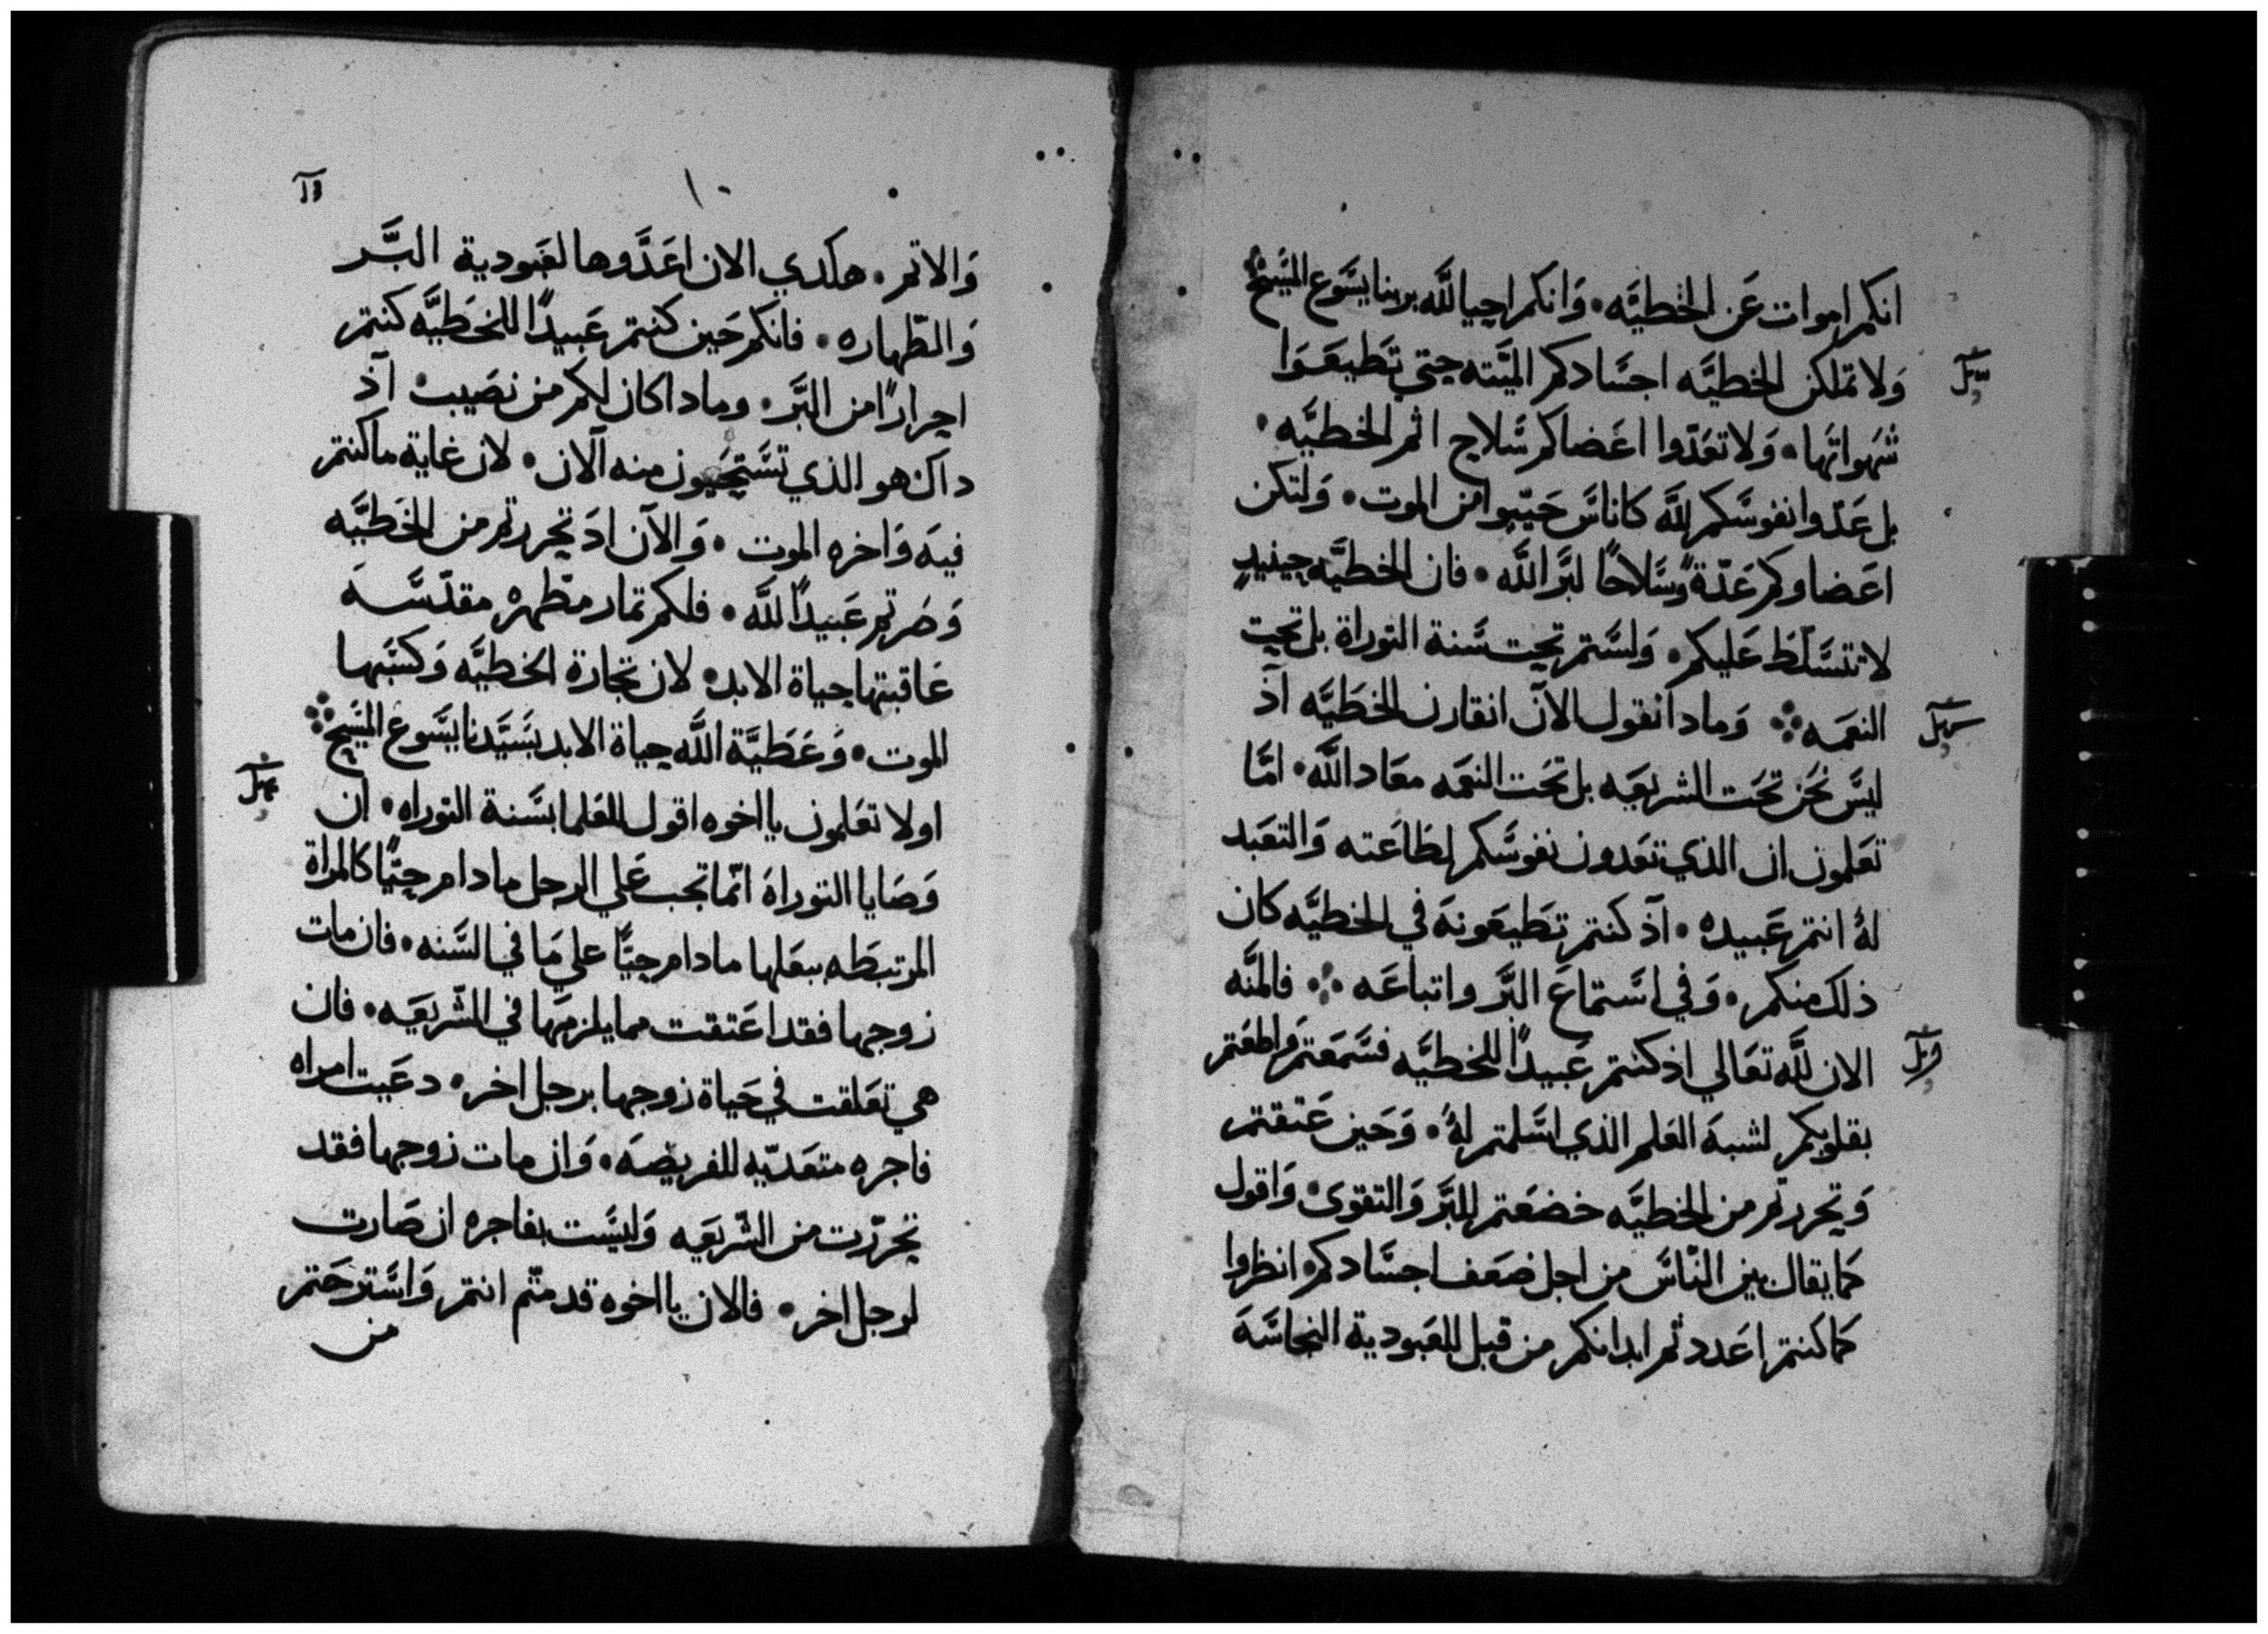 انكم اموات عَن الخطيَّه • وَانكم احيا للَّه بربنا يسَوع المسَيح
وَلا تملكن الخطيَّه اجسَادكم الميَّته حتي تطيعَوا
شهواتها • وَلا تعَدّوا اعَضاكم سَّلاح اثم الخطيَّه •
بل عَدّوا نفوسَكم للَّه كاناسَ حَيّيوا من الموت • وَلتكن
اعَضاوكم عَدّة وسَلاحًا لبَّر اللَّه • فان الخطيَّه حينيدٍ
لا تتسَلّط عَليكم • وَلسَتم تحت سَّنة التوراة بل تحت
النعمَه ⁘ وَمادا نقول الآن انقارن الخطَيَّه آذ
ليسَ نحَن تحَت الشريعَيه بل تحَت النعَمه معَاد اللَّه • امَّا
تعَلمون ان الذي تعَدون نفوسَكم لطَاعَته وَالتعَبد
لهُ انتم عَبيده • آذ كنتم تطَيعَونهَ في الخطيَّه كان
ذلك منكم • وَفي اسَّتماعَ البَّر واتباعَه ⁘ فالمنَّه
الان للَّه تعَالي اذ كنتم عَبيدًا للخطيَّه فسَّمَعَتم وَاطعَتم
بقلوبكم لشبهَ العَلم الذي اسَّلمتم لهُ • وَحَين عَتقتم
وَتحررتم من الخطيَّه خضعَتم للبَّر وَالتقوىَ • وَاقول
كما يقال بين النّاسَ من اجل ضعَف اجسَّادكم • انظروا
كما كنتم اعَددتم ابدانكم من قبل للعَبودية النجاسَّهَ
١٠
وَالاثم • هكدي الان اعَدَّوها لعَبودية البَّر
وَالطّهاره • فانكم حَين كنتم عَبيدًا للخطَيَّه كنتم
احرارًا من البَّر • وماداكان لكم من نصَيبٍ آذ
داك هو الذي تسَّتحَيون منه آلان • لان غاية ما كنتم
فيهَ وَاخره الموت • وَالآن ادَ تحررتم من الخَطيَّه
وَصَرتم عَبيدًا للَّه • فلكم تمار مطّهرهٌ مقدّسَّهَ
عَاقبتها حياة الابد • لان تجارة الخطيَّه وَكسَبها
الموت • وَعَطيَّة اللَّه حياة الابد بسَيَّدنا يسَّوع المسَيح ⁘
اولا تعَلمون يا اخوه اقول للعَلما بسَّنة التوراه • ان
وَصَايا التوراهَ انّما تجب عَلي الرجل ما دام حيًّا كالمراة
المرتبطَه ببعَلها ما دام حيًّا علي مَا في السَّنه • فان مات
زوجها فقد اعَتقت مما يلزمهَا في الشّريعَيه • فان
هي تعَلقت في حَياة زوجها برجل اخر • دعَيت امراه
فاجره متعَدّيه للفريضَهَ • وَان مات زوجها فقد
تحررّت من الشّريعَيه وَليسَت بفاجره ان صَارت
لرجل اخر • فالان يا اخوه قد متّم انتم وَاسَّترحَتم
من